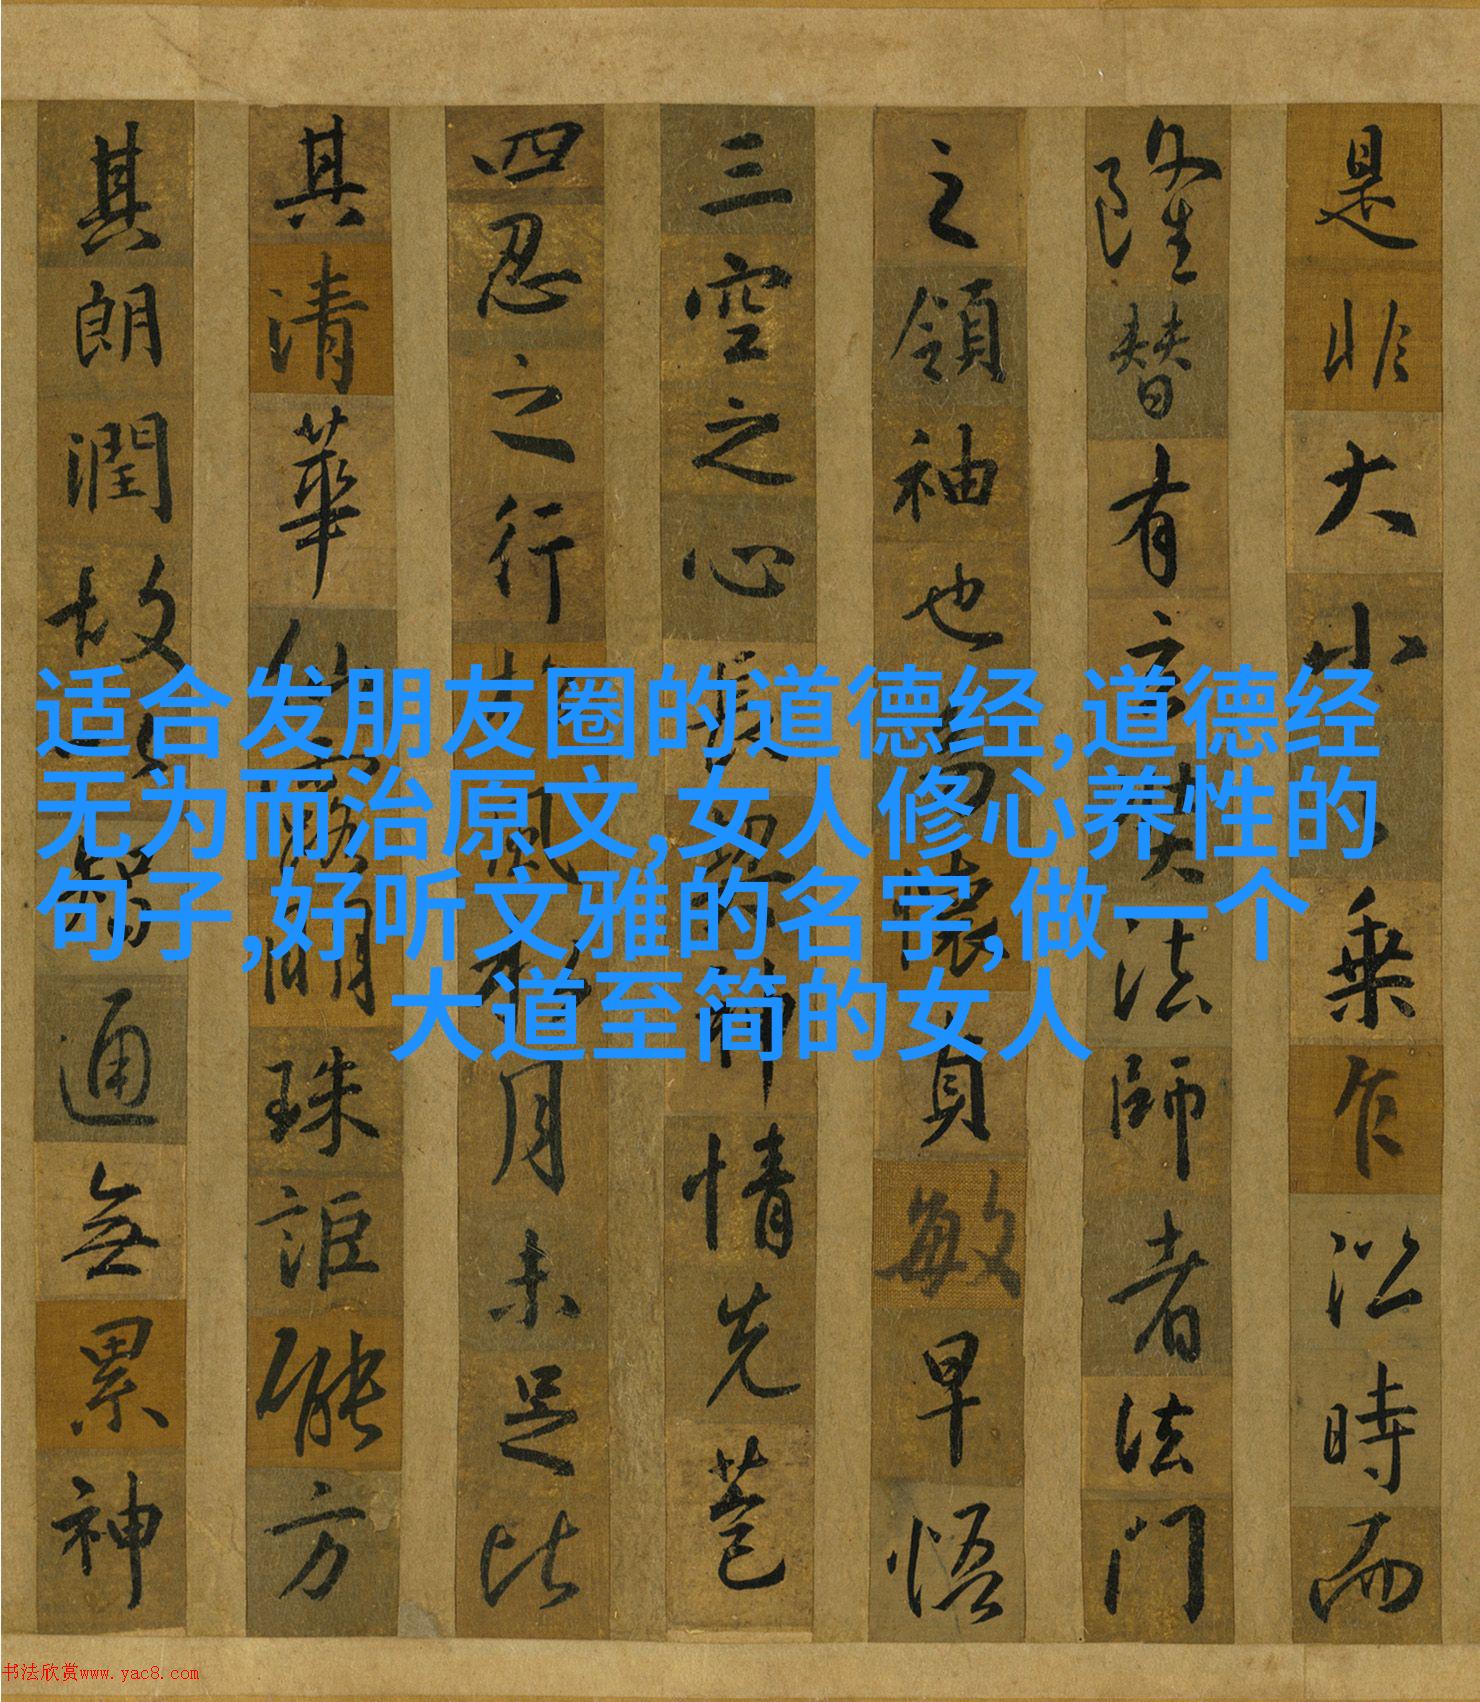 适合发朋友圈的道德经,道德经
无为而治原文,女人修心养性的
句子,好听文雅的名字,做一个
大道至简的女人
是非大小之乘乍沿時而
隆替有玄奘法師者法門
之領袖也幼懷貞敏早悟
三空之心長契神情先苞
四忍之行松風水月未足比
其清華仙露明珠詎能方
其朗潤故以智通無累神
书法欣赏www.yac8.com